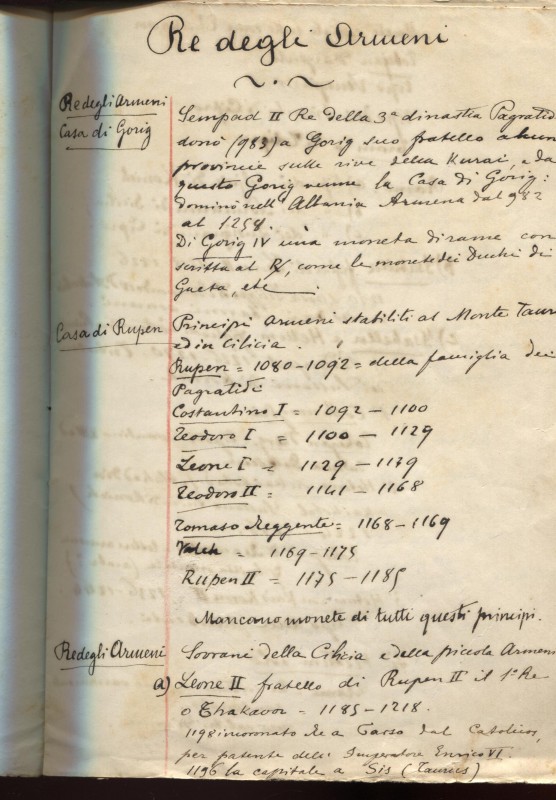 Re degli Armeni
Re degli Armeni
Casa di Gorig
Sempad II Re della 3ª dinastia Pagratid
donò (983) a Gorig suo fratello alcun
provincie sulle rive della Kurai, e da
questo Gorig venne la Casa di Gorig:
dominò nell' Albania Armena dal 982
al 1258.
Di Gorig IV una moneta di rame con
scritta al R/, come le monete dei Duchi di
Gaeta, etc
Casa di Rupen
Principi Armeni stabiliti al Monte Taur
ed in Cilicia.
Rupen = 1080-1092 = della famiglia dei
Pagratidi
Costantino I = 1092 - 1100
Teodoro I = 1100 - 1129
Leone I = 1129 - 1139
Teodoro II = 1141 - 1168
Tomaso Reggente = 1168-1169
= 1169-1175
Rupen II = 1175-1185
Mancano monete di tutti questi principi.
Re degli Armeni
Sovrani della Cilicia e della piccola Armeni
a) Leone II fratello di Rupen II il 1º Re
o Thakavor - 1185-1218.
1198 incoronato Re a Tarso dal Catolicos,
per patente dell' Imperatore Enrico VI.
1196 la capitale a Sis (Taurus)